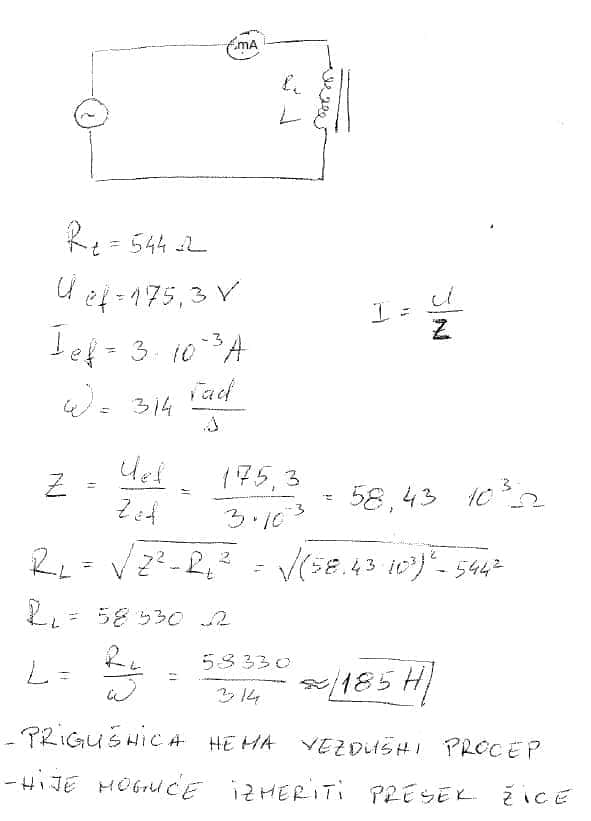 mA
R_L
L
R_t = 544 Ω
U ef = 175,3 V
I = U/Z
I ef = 3 · 10^-3 A
ω = 314 rad/s
Z = Uef/Zef = 175,3/3·10^-3 = 58,43 10^3 Ω
R_L = √(Z² - R_t²) = √((58.43·10³)² - 544²)
R_L = 58 330 Ω
L = R_L/ω = 58330/314 ≈ 185 H
- PRIGUŠNICA NEMA VEZDUŠNI PROCEP
- NIJE MOGUĆE IZMERITI PRESEK ŽICE